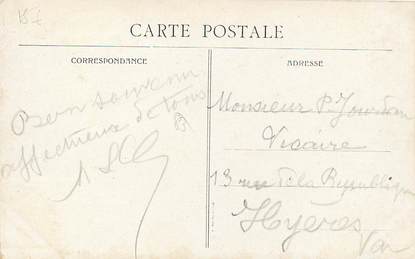 CARTE POSTALE
CORRESPONDANCE
Bon souvenir
affectueux de tous
ADRESSE
Monsieur P. Jourdan
Vicaire
13 rue de la République
Hyères
Var